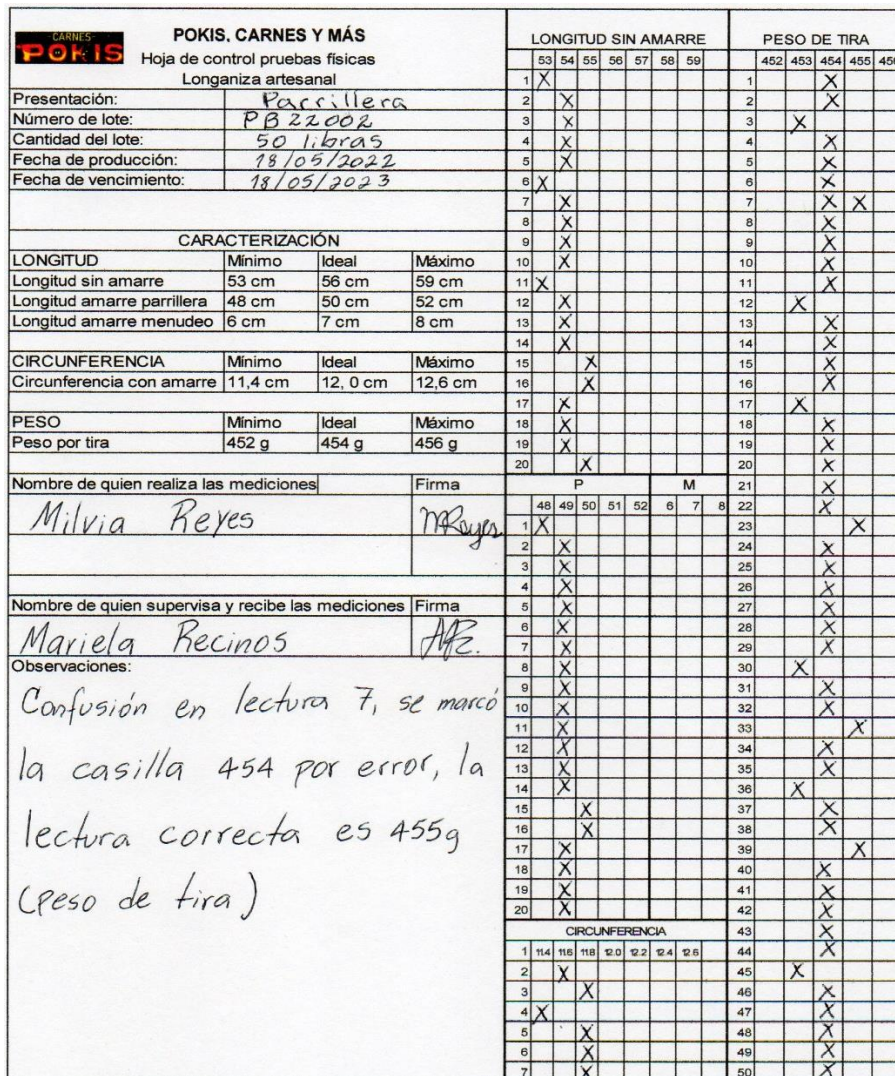 CARNES
POKIS
POKIS, CARNES Y MÁS
Hoja de control pruebas físicas
Longaniza artesanal
Presentación: Parrillera
Número de lote: PB22002
Cantidad del lote: 50 libras
Fecha de producción: 18/05/2022
Fecha de vencimiento: 18/05/2023
CARACTERIZACIÓN
LONGITUD Mínimo Ideal Máximo
Longitud sin amarre 53 cm 56 cm 59 cm
Longitud amarre parrillera 48 cm 50 cm 52 cm
Longitud amarre menudeo 6 cm 7 cm 8 cm
CIRCUNFERENCIA Mínimo Ideal Máximo
Circunferencia con amarre 11,4 cm 12, 0 cm 12,6 cm
PESO Mínimo Ideal Máximo
Peso por tira 452 g 454 g 456 g
Nombre de quien realiza las mediciones Firma
Milvia Reyes MReyes
Nombre de quien supervisa y recibe las mediciones Firma
Mariela Recinos
Observaciones:
Confusión en lectura 7, se marcó
la casilla 454 por error, la
lectura correcta es 455g
(peso de tira)
LONGITUD SIN AMARRE
53 54 55 56 57 58 59
1 X
2 X
3 X
4 X
5 X
6 X
7 X
8 X
9 X
10 X
11 X
12 X
13 X
14 X
15 X
16 X
17 X
18 X
19 X
20 X
P M
48 49 50 51 52 6 7 8
1 X
2 X
3 X
4 X
5 X
6 X
7 X
8 X
9 X
10 X
11 X
12 X
13 X
14 X
15 X
16 X
17 X
18 X
19 X
20 X
CIRCUNFERENCIA
1 11.4 11.6 11.8 12.0 12.2 12.4 12.6
2 X
3 X
4 X
5 X
6 X
7 X
PESO DE TIRA
452 453 454 455
1 X
2 X
3 X
4 X
5 X
6 X
7 X X
8 X
9 X
10 X
11 X
12 X
13 X
14 X
15 X
16 X
17 X
18 X
19 X
20 X
21 X
22 X
23 X
24 X
25 X
26 X
27 X
28 X
29 X
30 X
31 X
32 X
33 X
34 X
35 X
36 X
37 X
38 X
39 X
40 X
41 X
42 X
43 X
44 X
45 X
46 X
47 X
48 X
49 X
50 X